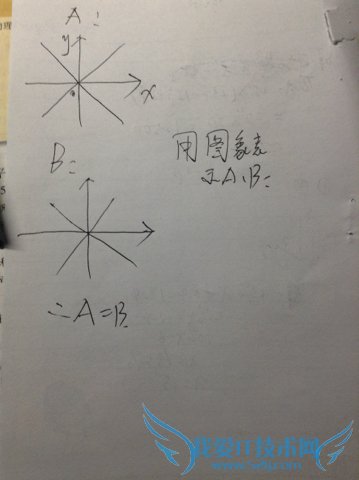 A:
y
x
B:
用图象表
示A、B:
∴A=B
我爱IT技术网
www.52ij.com